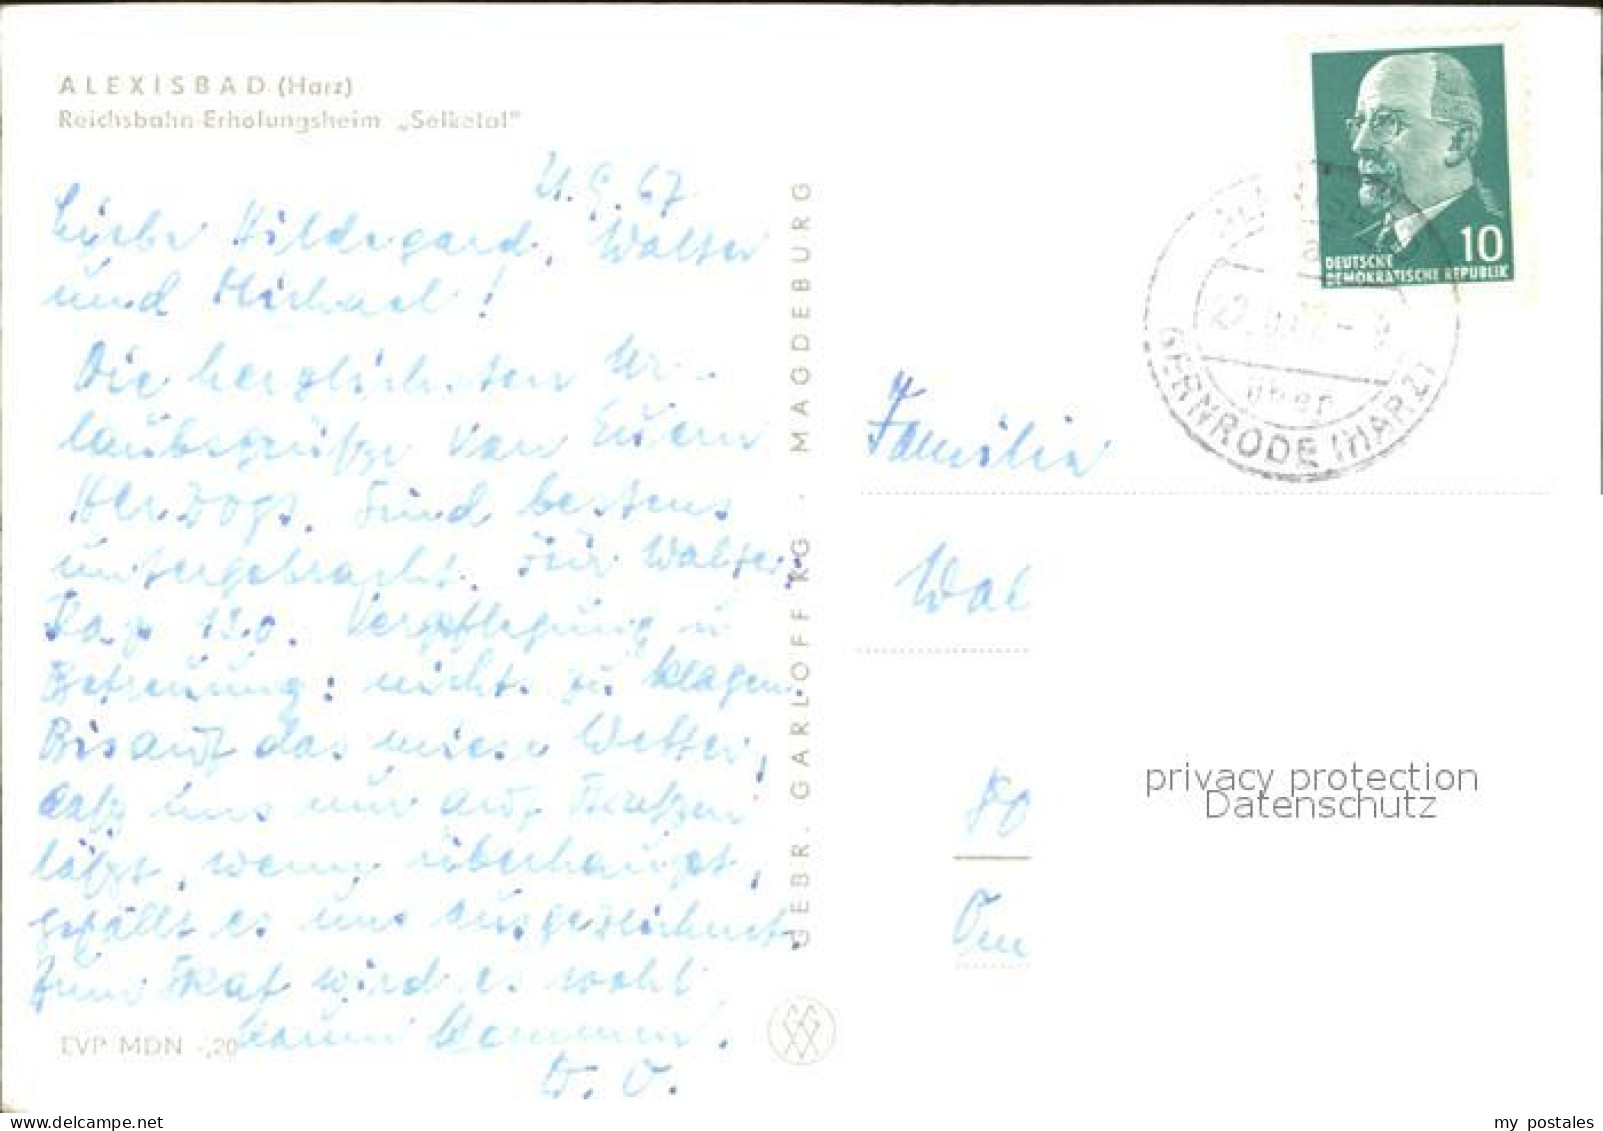 ALEXISBAD (Harz)
Reichsbahn-Erholungsheim „Selketal"
21.9.67
Liebe Hildegard, Walter
und Michael!
Die herzlichsten Ur-
laubsgrüße von Euern
Herzogs. Sind bestens
untergebracht. Für Walter:
Kap 120. Verpflegung u
Betreuung: nichts zu klagen.
Bis auf das miese Wetter,
uns nur auf Skatspiel
läßt, wenn überhaupt,
gefällt es uns ausgezeichnet.
Zum Skat wird es wohl
kaum kommen.
D. O.
EVP MDN -,20
GEBR. GARLOFF KG · MAGDEBURG
DEUTSCHE
DEMOKRATISCHE REPUBLIK
10
über
GERNRODE (HARZ)
Familie
Wal
Ko
privacy protection
Datenschutz
my postales